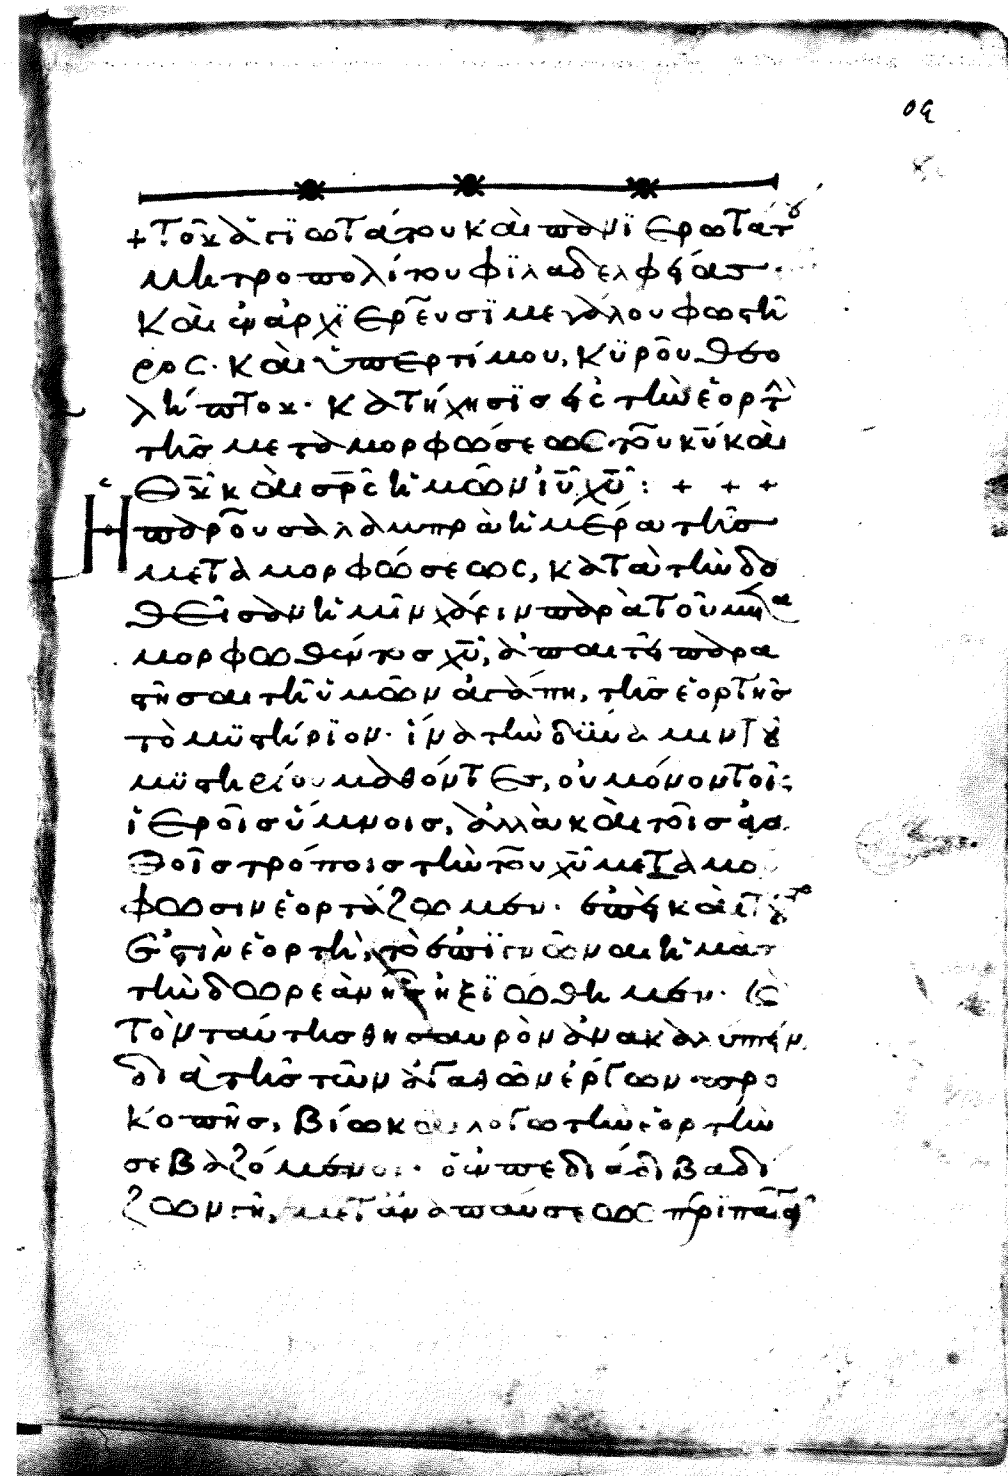 ος
+ Τοῦ ἁγιωτάτου καὶ πανϊερωτάτου
μητροπολίτου Φϊλαδελφείασ·
καὶ ἐν ἀρχϊερεῦσϊ μεγάλου φωστῆ
ρος· καὶ ὑπερτίμου, κϋροῦ Θεο
λήπτου· κατήχησϊσ εἰς τὴν ἑορτὴν
τῆσ μεταμορφώσεως τοῦ κ̅υ̅ καὶ
Θ̅υ̅ καὶ σ̅ρ̅ς ἡμῶν ἰ̅υ̅ χ̅υ̅ : + + +
Ἡ παροῦσα λαμπρὰ ἡμέρα τῆσ
μεταμορφώσεως, κατὰ τὴν δο
θεῖσαν ἡμῖν χάριν παρὰ τοῦ μετα
μορφωθέντοσ χ̅υ̅, ἀπαιτεῖ παρα
στῆσαι τῆ ὑμῶν ἀγάπη, τῆσ ἑορτῆσ
τὸ μϋστήρϊον· ἵνα τὴν δϋναμιν τοῦ
μϋστηρίου μαθόντεσ, οὐ μόνον τοῖσ
ἱεροῖσ ὕμνοισ, ἀλλὰ καὶ τοῖσ ἀγα
θοῖσ τρόποισ τὴν τοῦ χ̅υ̅ μεταμό
φωσιν ἑορτάζωμεν· ἐπεὶ καὶ τοῦτο
ἐστὶν ἑορτὴ, τὸ ἐπϊγνῶναι ἡμᾶσ
τὴν δωρεὰν ἧσ ἠξϊώθημεν· καὶ
τὸν ταύτησ θησαυρὸν ἀνακαλύπτειν
διὰ τῆσ τῶν ἀγαθῶν ἔργων προ
κοπῆσ, βίω καὶ λόγω τὴν ἑορτὴν
σεβαζόμενοι· ὁ ἐν πεδιάδι βαδί
ζων γῆ, μετ ἀναπαύσεως πϵρϊπατεῖ